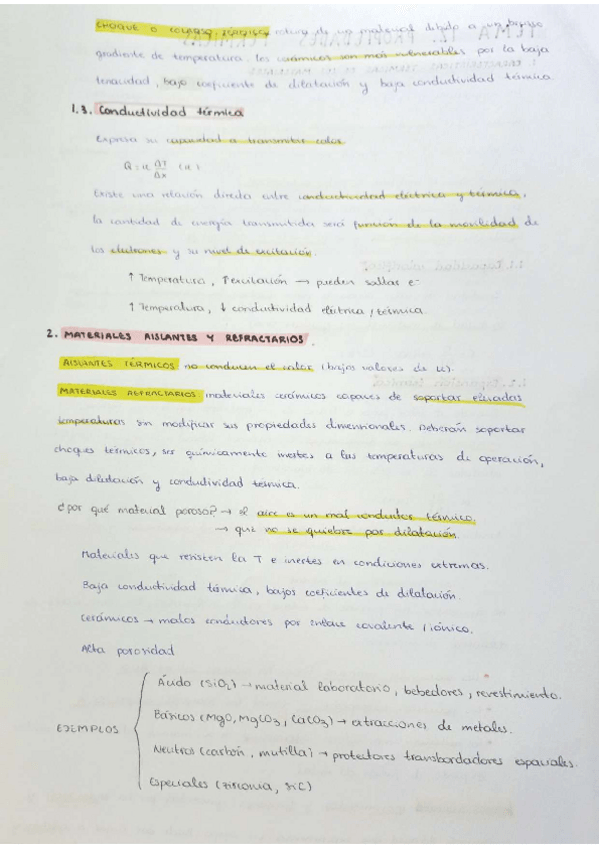 CHOQUE O COLAPSO TÉRMICO rotura de un material debido a un brusco
gradiente de temperatura. Los cerámicos son más vulnerables por la baja
tenacidad, bajo coeficiente de dilatación y baja conductividad térmica.
1.3. Conductividad térmica
Expresa su capacidad a transmitir calor.
Existe una relación directa entre conductividad eléctrica y térmica,
la cantidad de energía transmitida será función de la movilidad de
los electrones y su nivel de excitación.
↑ Temperatura, ↑ excitación → pueden saltar e-
↑ Temperatura, ↓ conductividad eléctrica y térmica.
2. MATERIALES AISLANTES Y REFRACTARIOS.
AISLANTES TÉRMICOS no conducen el calor (bajos valores de
MATERIALES REFRACTARIOS materiales cerámicos capaces de soportar elevadas
temperaturas sin modificar sus propiedades dimensionales. Deberán soportar
choques térmicos, ser químicamente inertes a las temperaturas de operación,
baja dilatación y conductividad térmica.
¿Por qué material poroso? → el aire es un mal conductor térmico.
→ que no se quiebre por dilatación.
Materiales que resisten la T e inertes en condiciones extremas.
Baja conductividad térmica, bajos coeficientes de dilatación.
Cerámicos → malos conductores por enlace covalente / iónico.
Alta porosidad
Ácido (SiO2) → material laboratorio, bebedores, revestimiento.
Básicos (MgO, MgCO3, CaCO3) → extracciones de metales.
EJEMPLOS
Neutros (carbón, mutilla) → protectores transbordadores espaciales.
Especiales (zirconia, SiC)